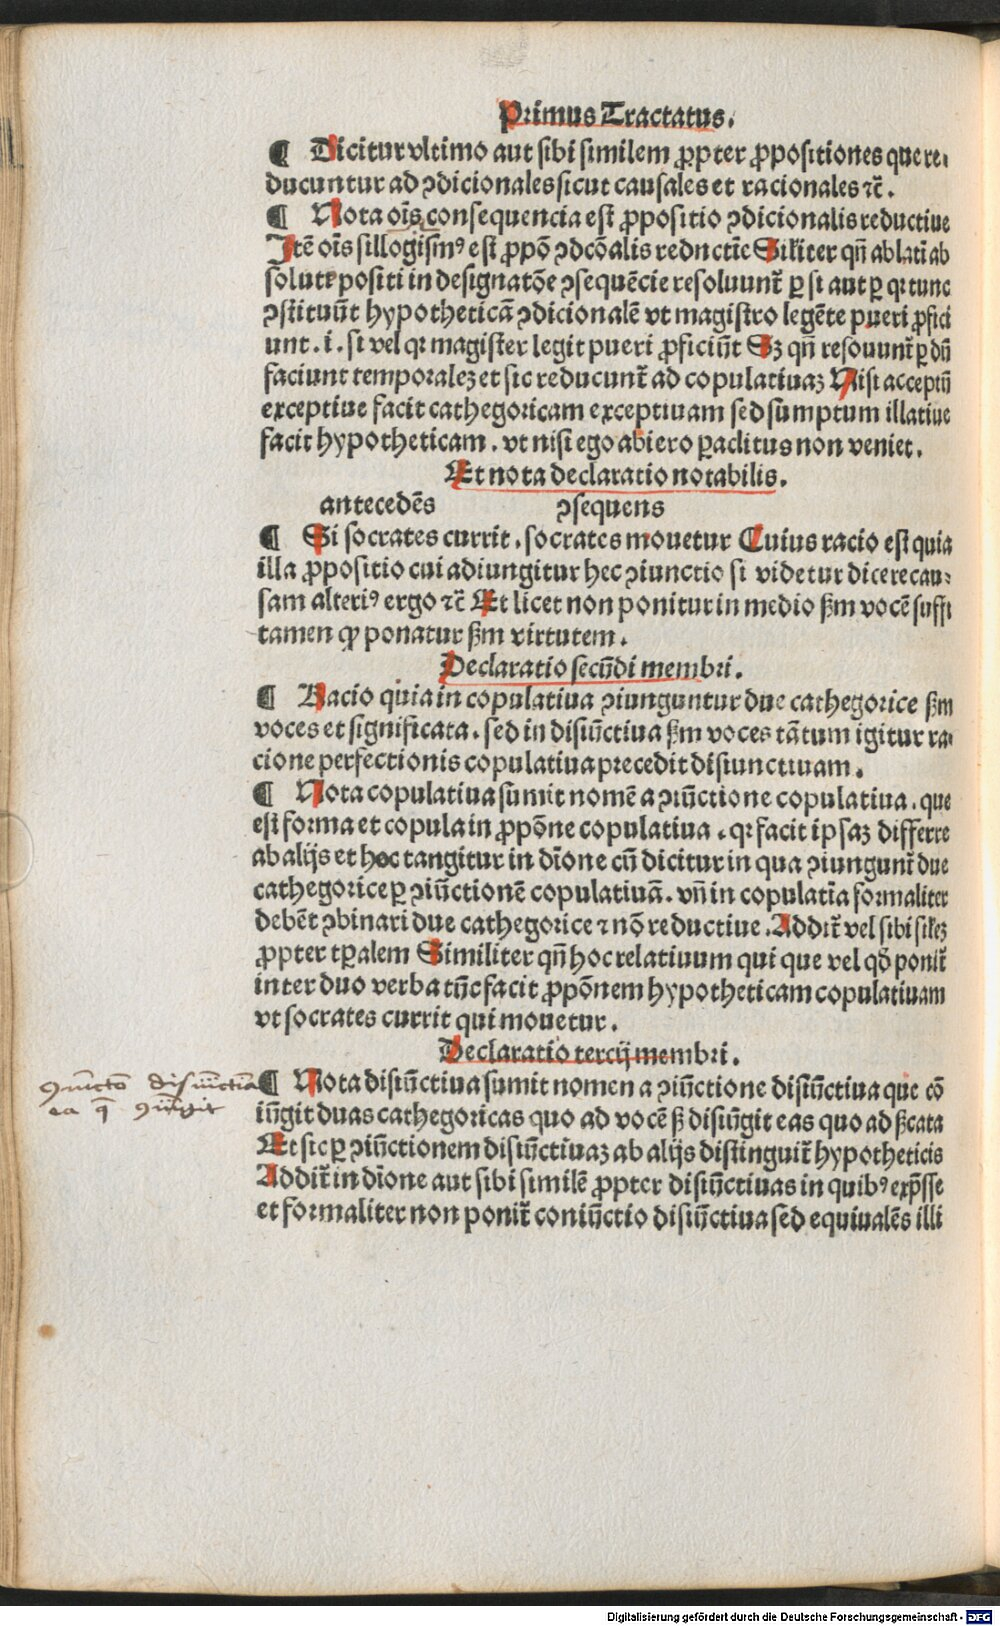 Primus Tractatus.
¶ Dicitur vltimo aut sibi similem ꝓpter ꝓpositiones que re-
ducuntur ad ꝯdicionales sicut causales et racionales ⁊c̄.
¶ Nota oīs consequencia est ꝓpositio ꝯdicionalis reductiue
Itē oīs sillogism⁹ est ꝓpō ꝯdcōalis reductīe Silīter qn̄ ablatī ab
solute positi in designatōe ꝯsequēcie resoluunt᷑ ꝑ si aut ꝑ qꝛ tunc
ꝯstituūt hypotheticā ꝯdicionalē vt magistro legēte pueri ꝓfici
unt .i. si vel qꝛ magister legit pueri ꝓficiūt Sꝫ qn̄ resouunt᷑ ꝑ dū
faciunt temporaleꝫ et sic reducunt᷑ ad copulatiuaꝫ Nisi acceptū
exceptiue facit cathegoricam exceptiuam sed sumptum illatiue
facit hypotheticam. vt nisi ego abiero ꝑaclitus non veniet.
Et nota declaratio notabilis.
antecedēs ꝯsequens
¶ Si socrates currit. socrates mouetur Cuius racio est quia
illa ꝓpositio cui adiungitur hec ꝯiunctio si videtur dicere cau-
sam alteri⁹ ergo ⁊c̄ Et licet non ponitur in medio ẜm vocē suffi
tamen ꝙ ponatur ẜm virtutem.
Declaratio secūdi membri.
¶ Racio quia in copulatiua ꝯiunguntur due cathegorice ẜm
voces et significata. sed in disiūctiua ẜm voces tātum igitur ra-
cione perfectionis copulatiua precedit disiunctiuam.
¶ Nota copulatiua sumit nomē a ꝯiūctione copulatiua. que
est forma et copula in ꝓpōne copulatiua. qꝛ facit ipsaꝫ differre
ab alijs et hoc tangitur in dīone cū dicitur in qua ꝯiungunt᷑ due
cathegorice ꝑ ꝯiūctionē copulatiuā. vn̄ in copulatīa formaliter
debēt ꝯbinari due cathegorice ⁊ nō reductiue. Addit᷑ vel sibi sileꝫ
ꝓpter tꝑalem Similiter qn̄ hoc relatiuum qui que vel qď ponit᷑
inter duo verba tūc facit ꝓpōnem hypotheticam copulatiuam
vt socrates currit qui mouetur.
Declaratio tercij membri.
ꝯiūcto disiūctīa
ea q̄ ꝯiūgit
¶ Nota disiūctiua sumit nomen a ꝯiūctione disiūctiua que cō
iūgit duas cathegoricas quo ad vocē ẜꝫ disiūgit eas quo ad ẜcata
Et sic ꝑ ꝯiūctionem disiūctiuaꝫ ab alijs distinguit᷑ hypotheticis
Addit᷑ in dīone aut sibi similē ꝓpter disiūctiuas in quib⁹ exp̄sse
et formaliter non ponit᷑ coniūctio disiūctiua sed equiualēs illi
Digitalisierung gefördert durch die Deutsche Forschungsgemeinschaft - DFG